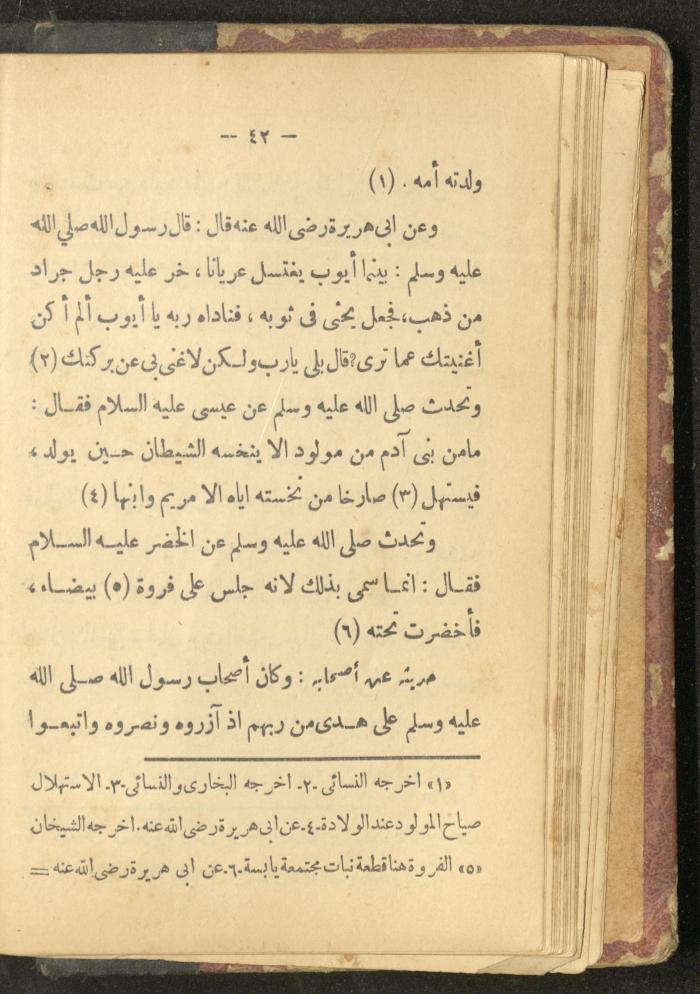 — ٤٢ —
ولدته أمه . (١)
وعن ابى هريرة رضى الله عنه قال : قال رسول الله صلي الله
عليه وسلم : بينما أيوب يغتسل عريانا ، خر عليه رجل جراد
من ذهب، فجعل يحثى فى ثوبه ، فناداه ربه يا أيوب ألم أكن
أغنيتك عما ترى؟ قال بلى يارب ولكن لاغنى بى عن بركتك (٢)
وتحدث صلى الله عليه وسلم عن عيسى عليه السلام فقال :
مامن بنى آدم من مولود الا ينخسه الشيطان حين يولد ،
فيستهل (٣) صارخا من نخسته اياه الا مريم وابنها (٤)
وتحدث صلى الله عليه وسلم عن الخضر عليه السلام
فقال : انما سمى بذلك لانه جلس على فروة (٥) بيضاء ،
فأخضرت تحته (٦)
حديثه عن أصحابه : وكان أصحاب رسول الله صلى الله
عليه وسلم على هدى من ربهم اذ آزروه ونصروه واتبعوا
«١» اخرجه النسائى -٢- اخرجه البخارى والنسائى -٣- الاستهلال
صياح المولود عند الولادة -٤- عن ابى هريرة رضى الله عنه . اخرجه الشيخان
«٥» الفروة هنا قطعة نبات مجتمعة يابسة -٦- عن ابى هريرة رضى الله عنه =